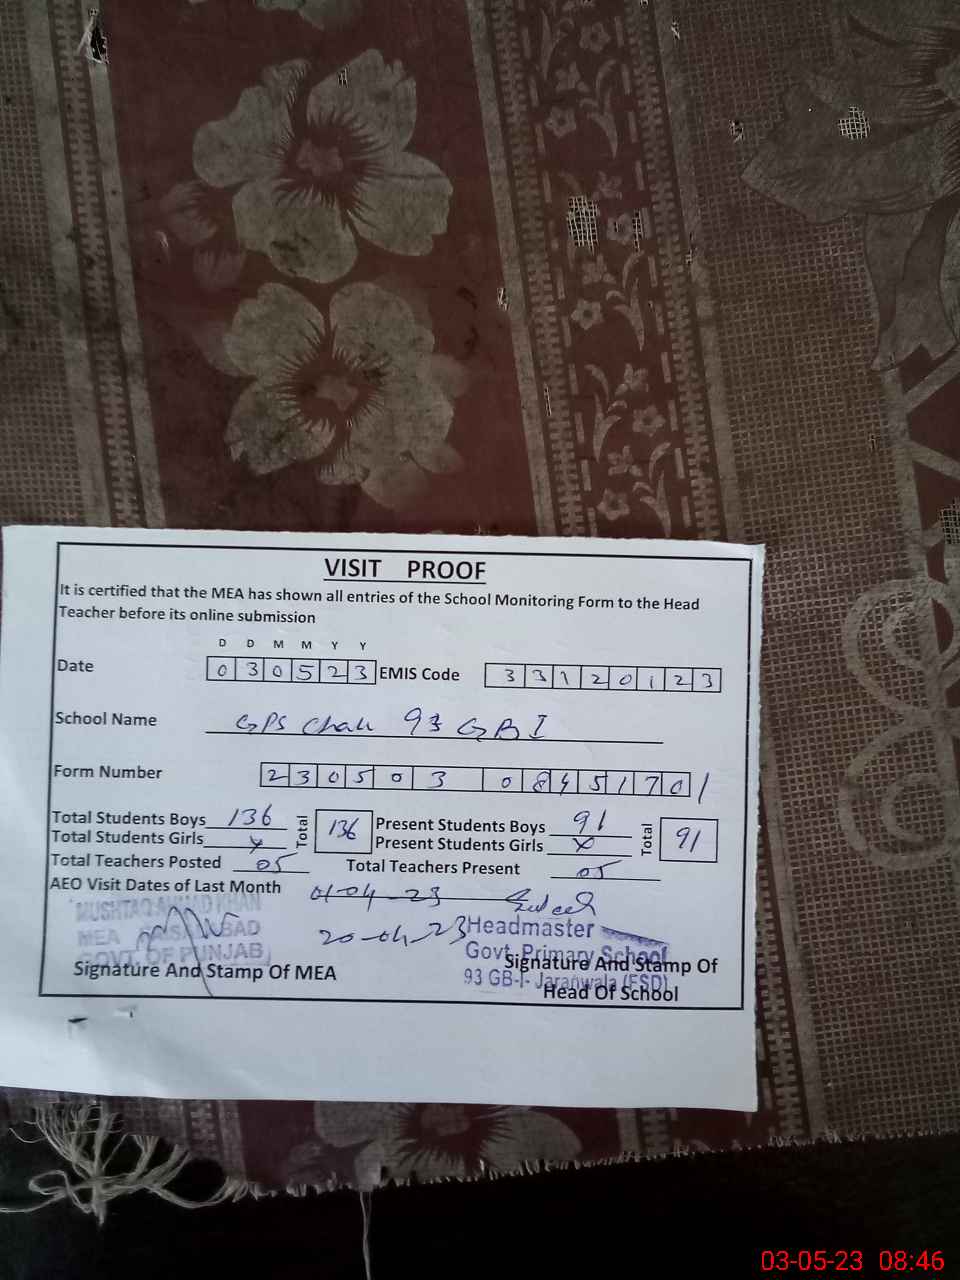 VISIT PROOF
It is certified that the MEA has shown all entries of the School Monitoring Form to the Head
Teacher before its online submission
D D M M Y Y
Date 030523 EMIS Code 33120123
School Name GPS Chak 93 GB I
Form Number 230503 0845170/
Total Students Boys 136 Total 136 Present Students Boys 91 Total 91
Total Students Girls x Present Students Girls x
Total Teachers Posted 05 Total Teachers Present 05
AEO Visit Dates of Last Month 01-04-23
20-04-23
MUSHTAQ AHMAD KHAN
MEA FAISALABAD
GOVT. OF PUNJAB
Signature And Stamp Of MEA
Headmaster
Govt. Primary School
93 GB-I- Jaranwala (FSD)
Signature And Stamp Of
Head Of School
03-05-23 08:46